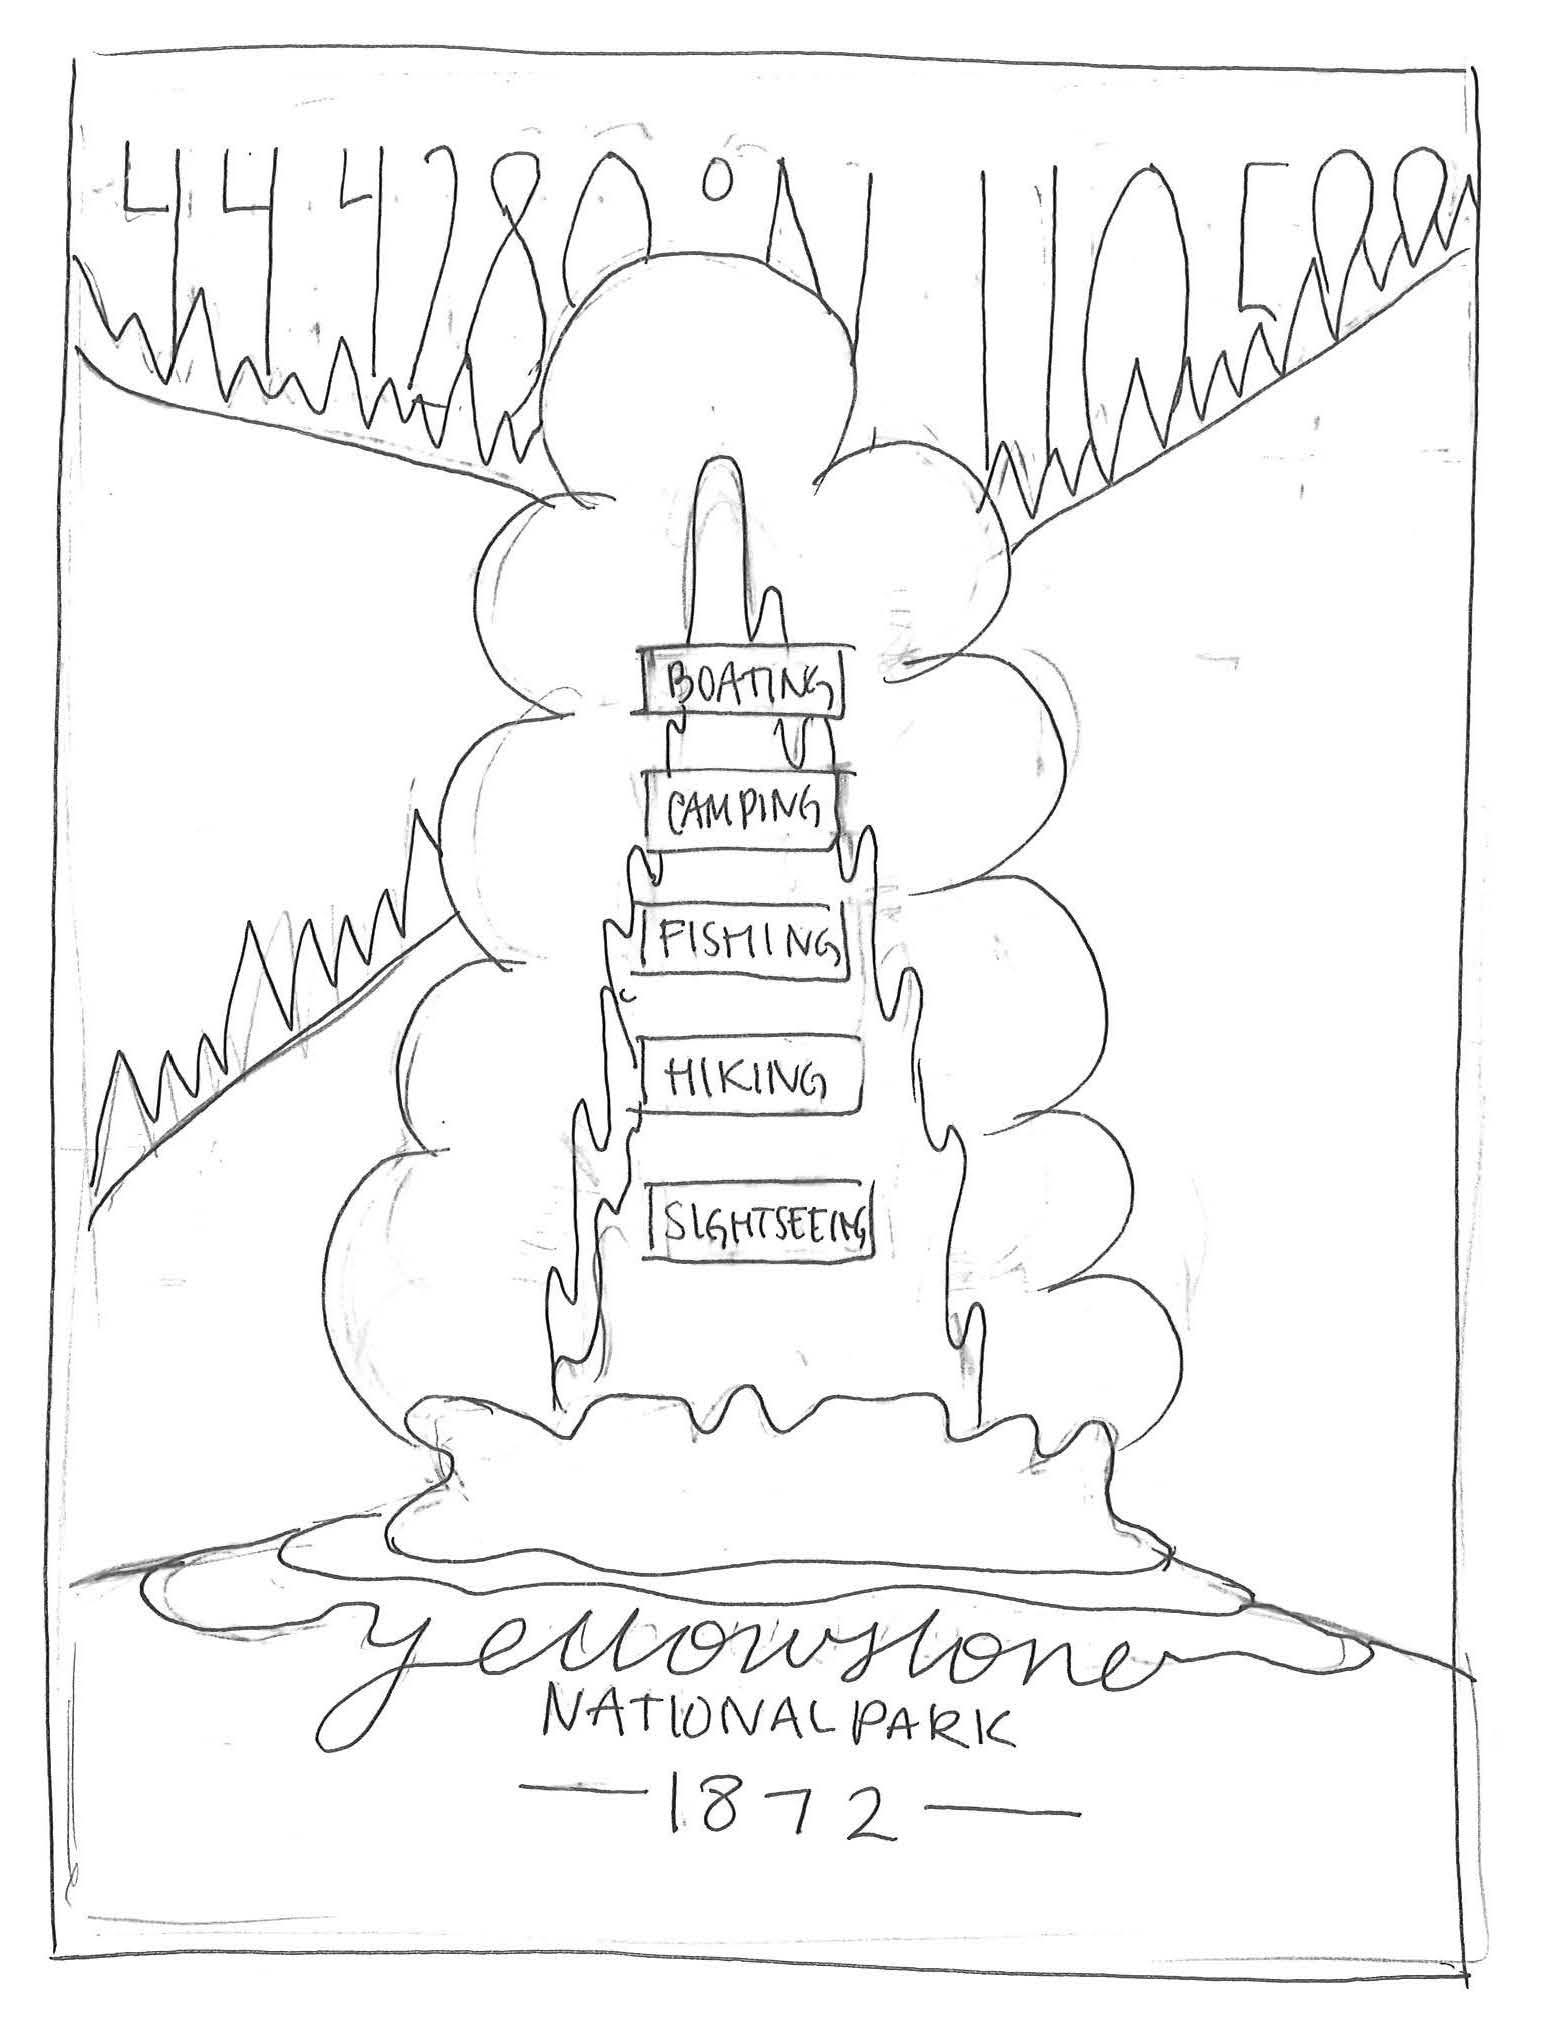 444280°N 110588
BOATING
CAMPING
FISHING
HIKING
SIGHTSEEING
yellowstone
NATIONAL PARK
—1872—